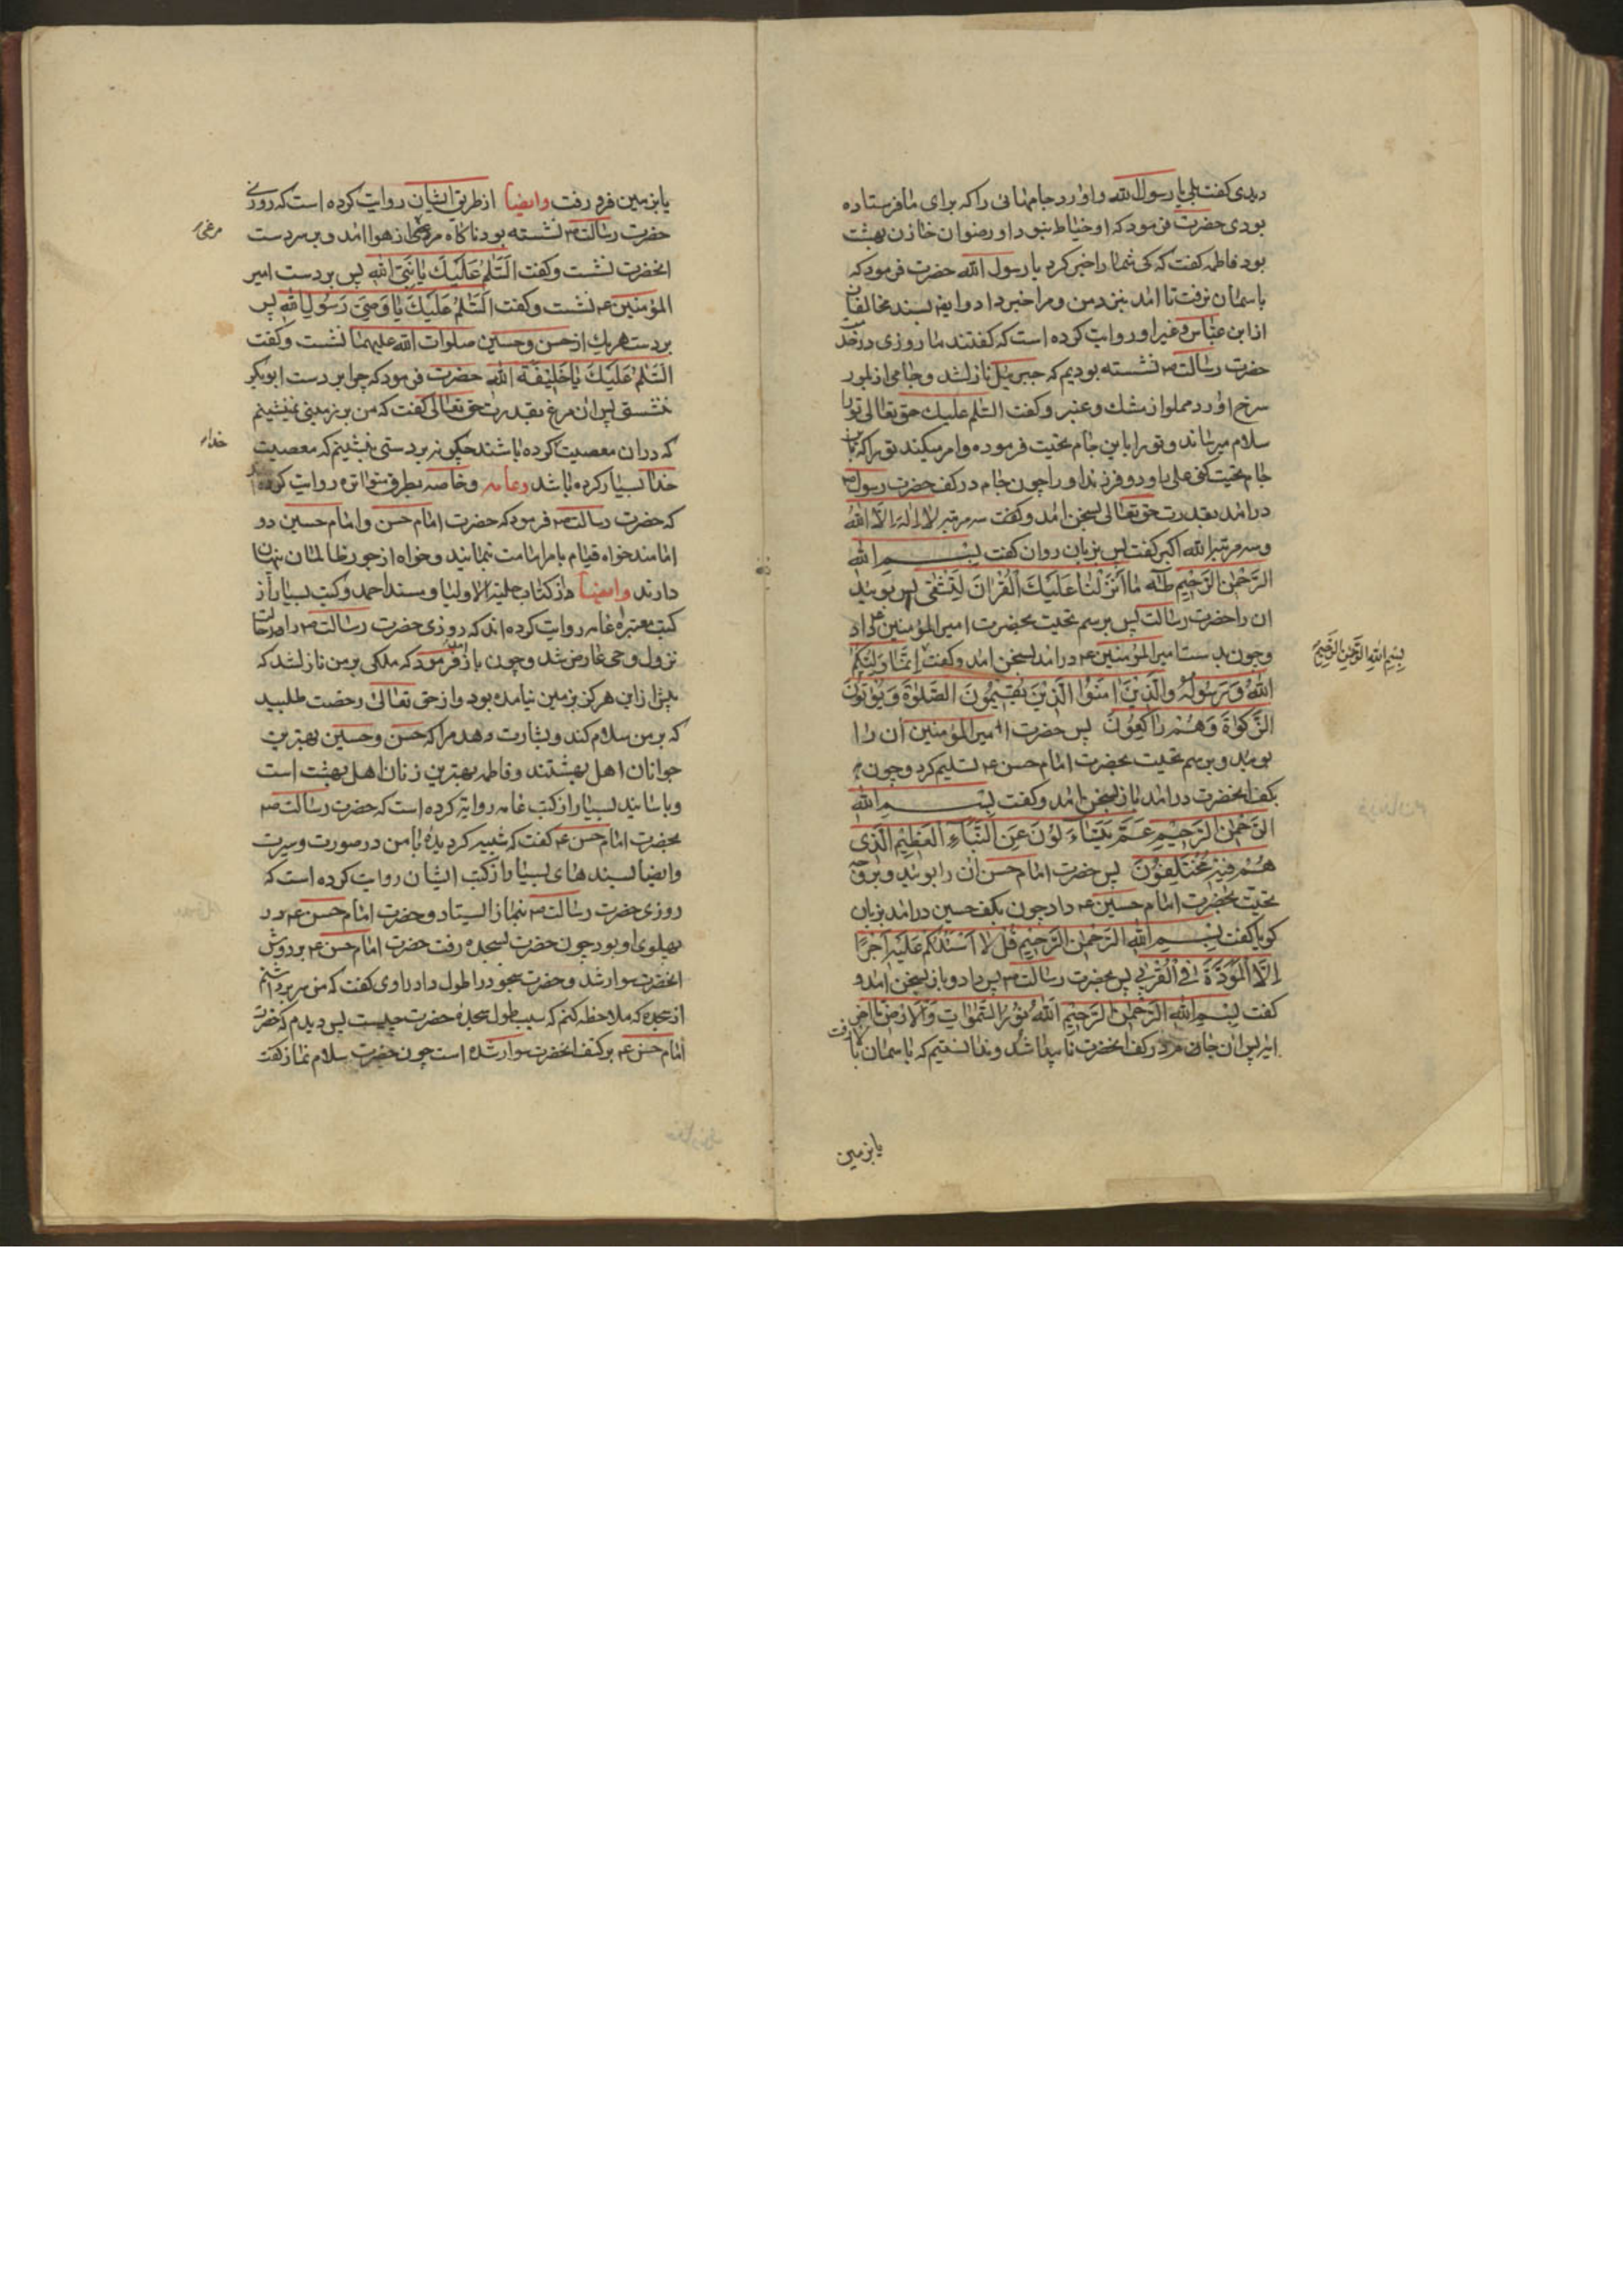 دیدی کفت بلی یا رسول الله و اورد جامهائی را که برای ما فرستاده
بودی حضرت فرمود که او خیاط نبود او رضوان خازن بهشت
بود فاطمه کفت که کی شما را خبر کرد یا رسول الله حضرت فرمود که
باسمان نرفت تا امد بنزد من و مرا خبر داد وایضا بسند مخالفان
از ابن عباس و غیر او روایت کرده است که کفتند ما روزی در خدمت
حضرت رسالت ص نشسته بودیم که جبریل نازل شد و جامی از بلور
سرخ اورد مملو از مشک و عنبر و کفت السلام علیک حق تعالی تو را
سلام میرساند و تو را باین جام تحیت فرموده و امر میکند تو را که باین
جام تحیت کنی علی را و دو فرزند او را چون جام در کف حضرت رسول ص
درامد بقدرت حق تعالی بسخن امد و کفت سه مرتبه لا اله الا الله
و سه مرتبه الله اکبر کفت پس بزبان روان کفت بسم الله
الرحمن الرحیم طه ما انزلنا علیک القران لتشقی پس بوئید
ان را حضرت رسالت پس برسم تحیت بحضرت امیر المؤمنین ع داد
و چون بدست امیر المؤمنین ع درامد بسخن امد و کفت انما ولیکم
بسم الله الرحمن الرحیم
الله و رسوله والذین امنوا الذین یقیمون الصلوة و یؤتون
الزکوة و هم راکعون پس حضرت امیر المؤمنین ان را
بوئید و برسم تحیت بحضرت امام حسن ع تسلیم کرد و چون
بکف انحضرت درامد باز بسخن امد و کفت بسم الله
الرحمن الرحیم عم یتساءلون عن النباء العظیم الذی
هم فیه مختلفون پس حضرت امام حسن ان را بوئید و بروجه
تحیت بحضرت امام حسین ع داد چون بکف حسین درامد بزبان
کویا کفت بسم الله الرحمن الرحیم قل لا اسئلکم علیه اجرا
الا المودة فی القربی پس بحضرت رسالت ص پس داد و باز بسخن امد و
کفت بسم الله الرحمن الرحیم الله نور السموات والارض تا اخر
ایه پس ان جام در کف انحضرت ناپیدا شد و ندانستیم که باسمان بالا رفت
یا بزمین
یا بزمین فرو رفت وایضا از طریق ایشان روایت کرده است که روزی
حضرت رسالت ص نشسته بود ناکاه مرغی از هوا امد و بر سر دست
مرغی
انحضرت نشست و کفت السلام علیک یا نبی الله پس بر دست امیر
المؤمنین ع نشست و کفت السلام علیک یا وصی رسول الله پس
بر دست هریک از حسن و حسین صلوات الله علیهما نشست و کفت
السلام علیک یا خلیفة الله حضرت فرمود که چرا بر دست ابوبکر
ننشستی پس ان مرغ بقدرت حق تعالی کفت که من بر زمینی نمینشینم
که دران معصیت کرده باشند چکونه بر دستی بنشینم که معصیت
خدا
خدا بسیار کرده باشد وعامه و خاصه بطرق متواتره روایت کرده
که حضرت رسالت ص فرمود که حضرت امام حسن و امام حسین دو
امامند خواه قیام بامر امامت نمایند و خواه از جور ظالمان پنهان
دارند وایضا از کتاب حلیة الاولیا و مسند احمد و کتب بسیار از
کتب معتبره عامه روایت کرده اند که روزی حضرت رسالت ص را در حالت
نزول وحی عارض شد و چون باز امد فرمود که ملکی بر من نازل شد که
پیش از این هرکز بزمین نیامده بود و از حق تعالی رخصت طلبید
که بر من سلام کند و بشارت دهد مرا که حسن و حسین بهترین
جوانان اهل بهشتند و فاطمه بهترین زنان اهل بهشت است
و باسانید بسیار از کتب عامه روایة کرده است که حضرت رسالت ص
بحضرت امام حسن ع کفت که شبیه کردیدهٔ با من در صورت و سیرت
وایضا بسندهای بسیار از کتب ایشان روایت کرده است که
روزی حضرت رسالت ص بنماز ایستاد و حضرت امام حسن ع در
پهلوی او بود چون حضرت بسجده رفت حضرت امام حسن ع بر دوش
انحضرت سوار شد و حضرت سجود را طول داد راوی کفت که من سر برداشتم
از سجده که ملاحظه کنم که سبب طول سجدهٔ حضرت چیست پس دیدم که حضرت
امام حسن ع بر کتف انحضرت سوار شده است چون حضرت سلام نماز کفت